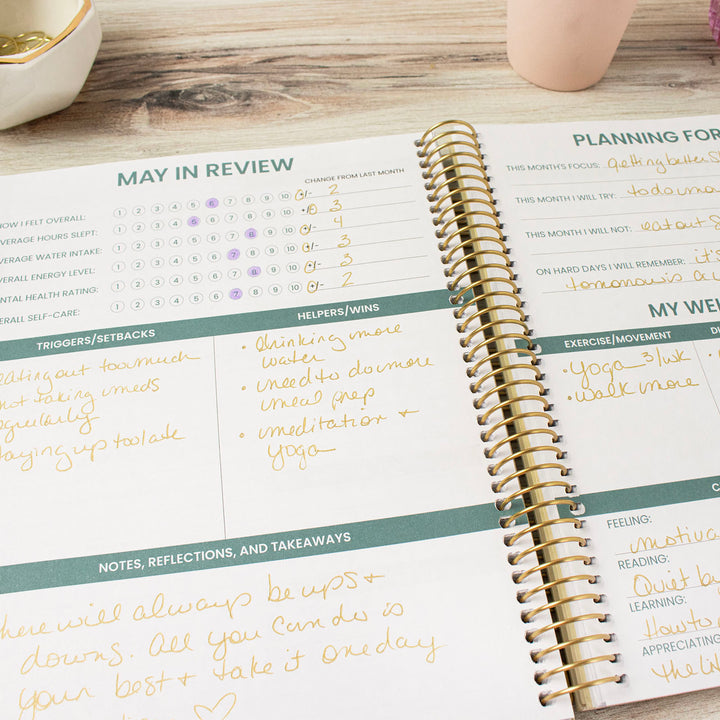 MAY IN REVIEW
CHANGE FROM LAST MONTH
HOW I FELT OVERALL: 1 2 3 4 5 6 7 8 9 10 +/- 2
AVERAGE HOURS SLEPT: 1 2 3 4 5 6 7 8 9 10 +/- 3
AVERAGE WATER INTAKE: 1 2 3 4 5 6 7 8 9 10 +/- 4
OVERALL ENERGY LEVEL: 1 2 3 4 5 6 7 8 9 10 +/- 3
MENTAL HEALTH RATING: 1 2 3 4 5 6 7 8 9 10 +/- 3
OVERALL SELF-CARE: 1 2 3 4 5 6 7 8 9 10 +/- 2
TRIGGERS/SETBACKS
eating out too much
not taking meds
regularly
staying up too late
HELPERS/WINS
• drinking more
water
• need to do more
meal prep
• meditation +
yoga
NOTES, REFLECTIONS, AND TAKEAWAYS
There will always be ups +
downs. All you can do is
your best + take it one day
PLANNING FOR
THIS MONTH'S FOCUS: getting better
THIS MONTH I WILL TRY: to do
THIS MONTH I WILL NOT: eat out
ON HARD DAYS I WILL REMEMBER: it's
tomorrow is a
MY
EXERCISE/MOVEMENT
• yoga 3/wk
• walk more
FEELING:
READING:
Quiet
LEARNING:
How to
APPRECIATING
the